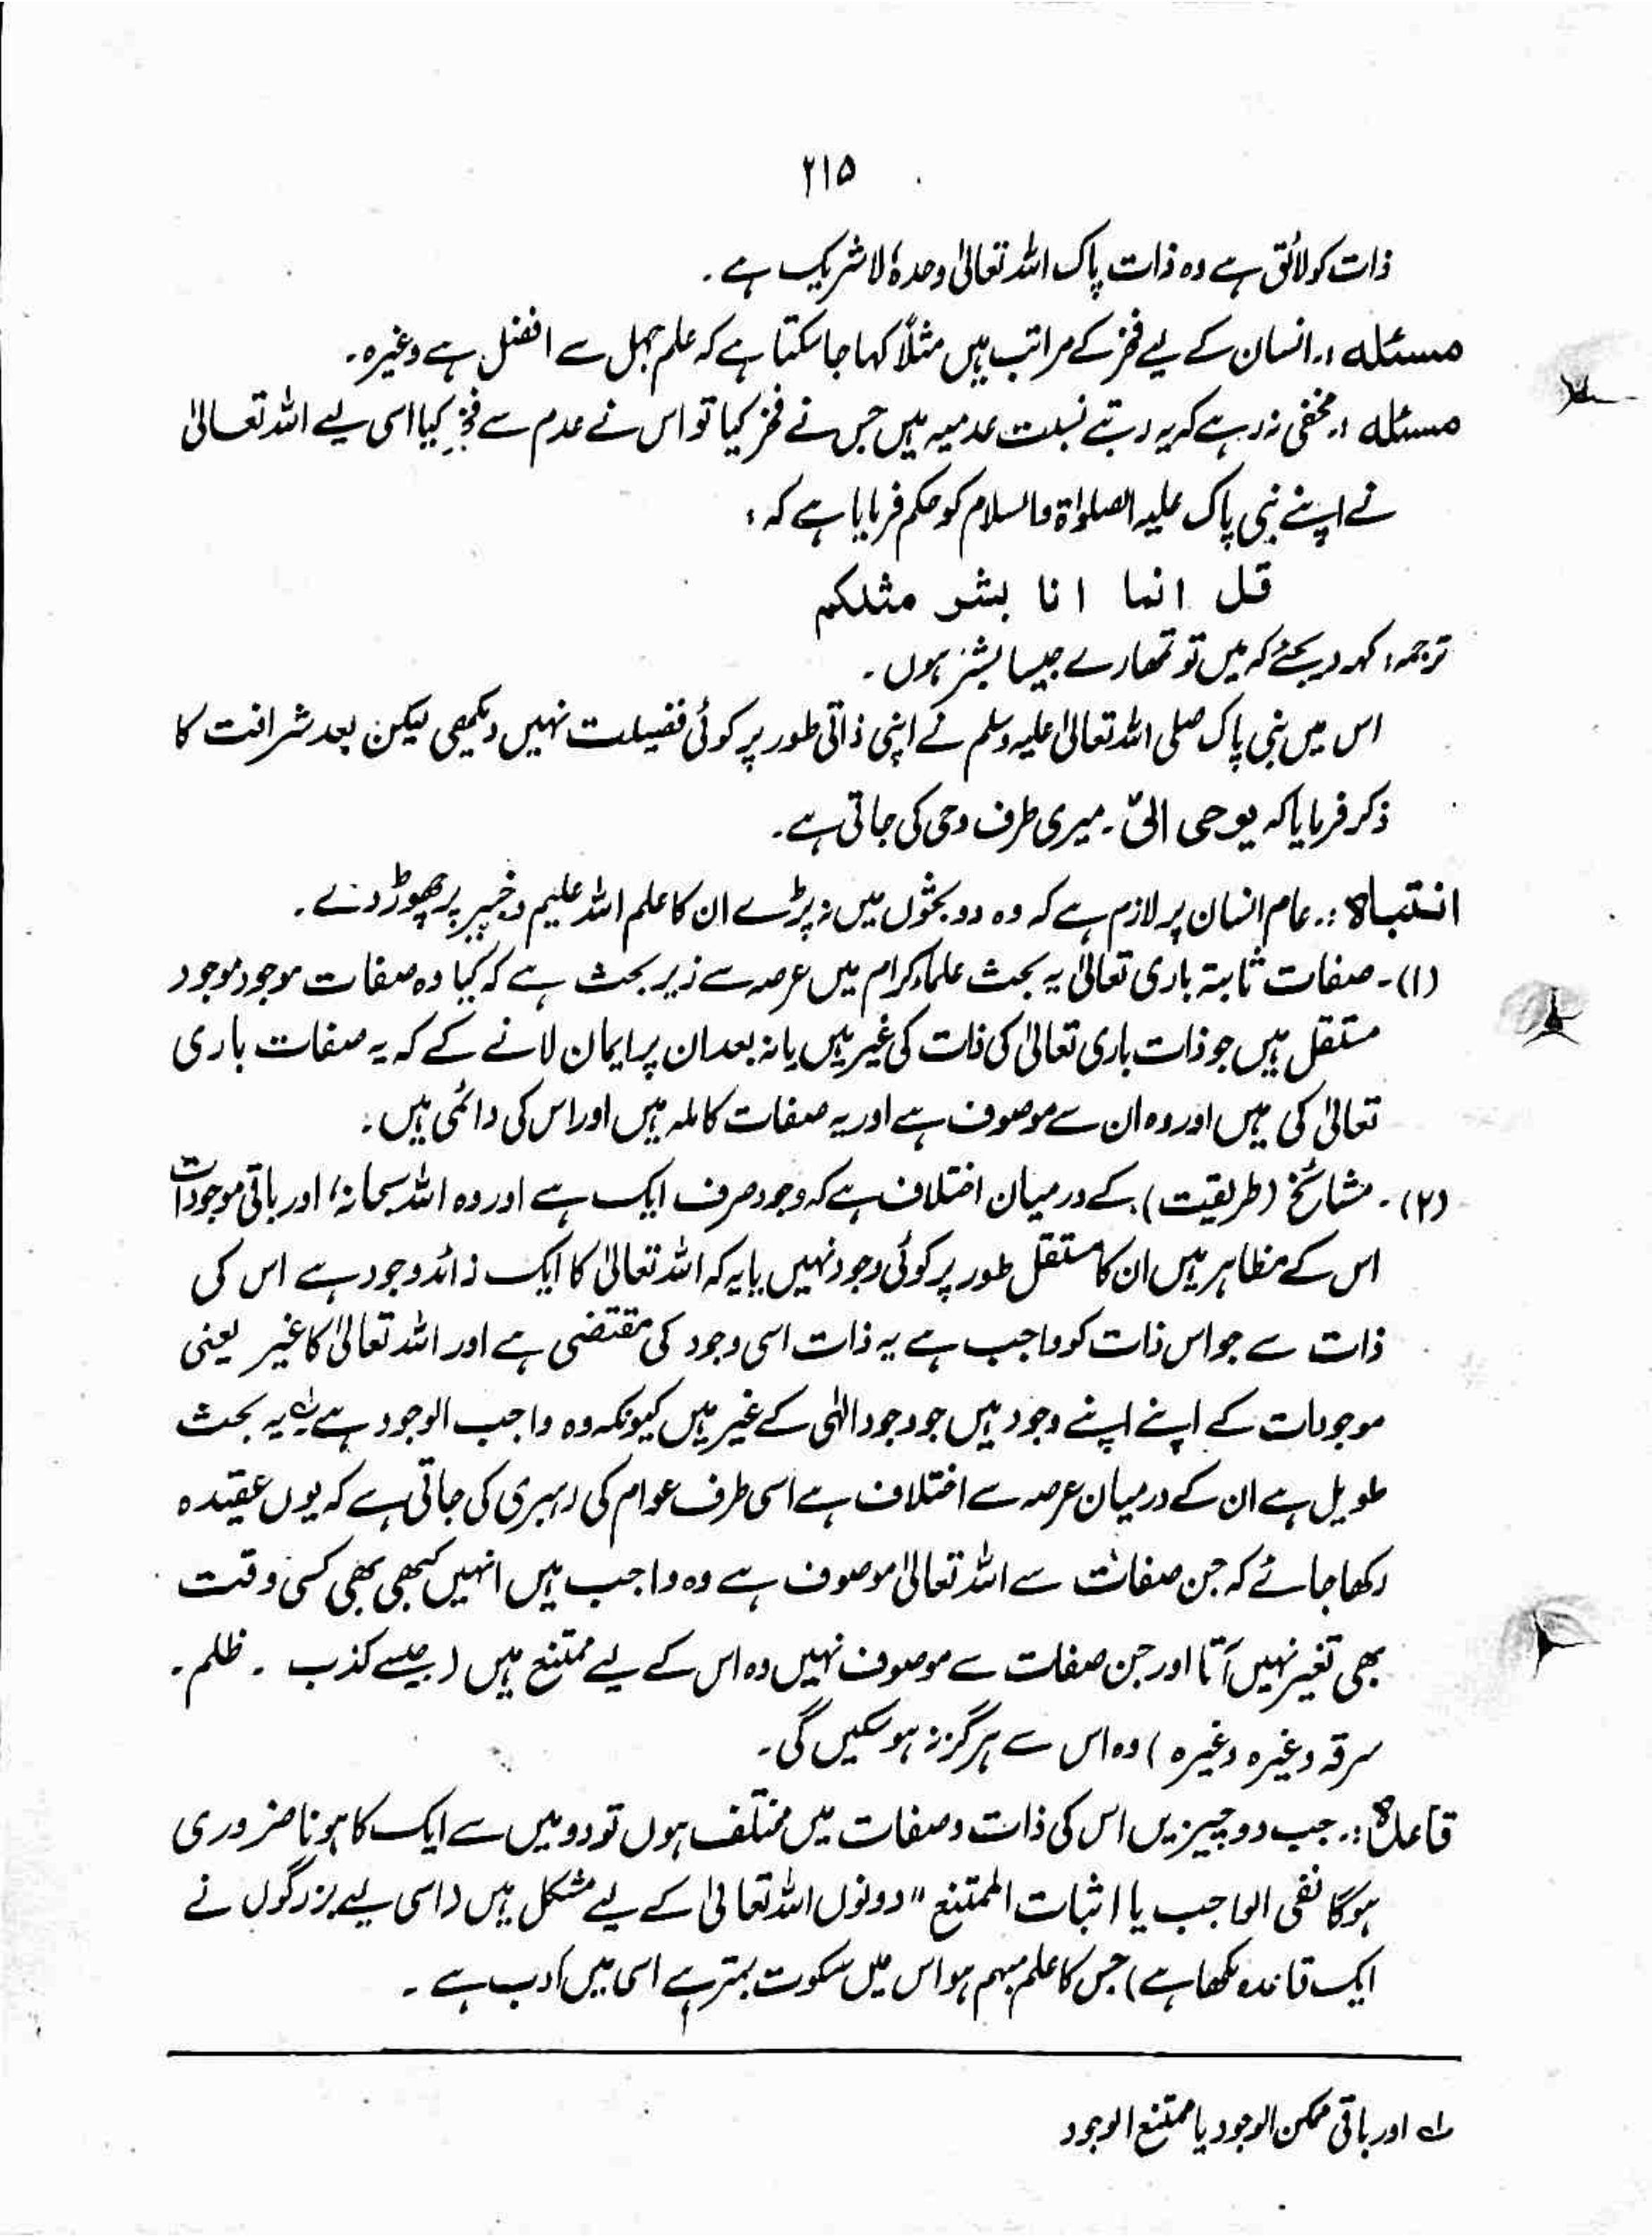 ۲۱۵
ذات کو لائق ہے وہ ذات پاک اللہ تعالیٰ وحدہٗ لا شریک ہے ۔
مسئلہ :۔ انسان کے لیے فخر کے مراتب ہیں مثلاً کہا جا سکتا ہے کہ علم جہل سے افضل ہے وغیرہ ۔
مسئلہ :۔ مخفی نہ رہے کہ یہ رتبے نسبت عدمیہ ہیں جس نے فخر کیا تو اس نے عدم سے فخر کیا اسی لیے اللہ تعالیٰ
نے اپنے نبی پاک علیہ الصلوٰۃ والسلام کو حکم فرمایا ہے کہ :
قل انما انا بشر مثلکم
ترجمہ : کہہ دیجئے کہ میں تو تمھارے جیسا بشر ہوں ۔
اس میں نبی پاک صلی اللہ تعالیٰ علیہ وسلم نے اپنی ذاتی طور پر کوئی فضیلت نہیں دیکھی لیکن بعد شرافت کا
ذکر فرمایا کہ یوحی الیّ ۔ میری طرف وحی کی جاتی ہے ۔
انتباہ :۔ عام انسان پر لازم ہے کہ وہ دو بحثوں میں نہ پڑے ان کا علم اللہ علیم و خبیر پر چھوڑ دے ۔
(۱) ۔ صفات ثابتہ باری تعالیٰ یہ بحث علماء کرام میں عرصہ سے زیر بحث ہے کہ کیا وہ صفات موجود موجود
مستقل ہیں جو ذات باری تعالیٰ کی ذات کی غیر ہیں یا نہ بعد ان پر ایمان لانے کے کہ یہ صفات باری
تعالیٰ کی ہیں اور وہ ان سے موصوف ہے اور یہ صفات کاملہ ہیں اور اس کی دائمی ہیں ۔
(۲) ۔ مشائخ (طریقیت) کے درمیان اختلاف ہے کہ وجود صرف ایک ہے اور وہ اللہ سبحانہٗ اور باقی موجودات
اس کے مظاہر ہیں ان کا مستقل طور پر کوئی وجود نہیں یا یہ کہ اللہ تعالیٰ کا ایک زائد وجود ہے اس کی
ذات سے جو اس ذات کو واجب ہے یہ ذات اسی وجود کی مقتضی ہے اور اللہ تعالیٰ کا غیر یعنی
موجودات کے اپنے اپنے وجود ہیں جو وجود الٰہی کے غیر ہیں کیونکہ وہ واجب الوجود ہے لہ یہ بحث
طویل ہے ان کے درمیان عرصہ سے اختلاف ہے اسی طرف عوام کی رہبری کی جاتی ہے کہ یوں عقیدہ
رکھا جائے کہ جن صفات سے اللہ تعالیٰ موصوف ہے وہ واجب ہیں انہیں کبھی بھی کسی وقت
بھی تغیر نہیں آتا اور جن صفات سے موصوف نہیں وہ اس کے لیے ممتنع ہیں (جیسے کذب ۔ ظلم ۔
سرقہ وغیرہ وغیرہ ) وہ اس سے ہرگز نہ ہو سکیں گی ۔
قاعدہ :۔ جب دو چیزیں اس کی ذات و صفات میں مختلف ہوں تو دو میں سے ایک کا ہونا ضروری
ہوگا نفی الواجب یا اثبات الممتنع " دونوں اللہ تعالیٰ کے لیے مشکل ہیں (اسی لیے بزرگوں نے
ایک قاعدہ لکھا ہے) جس کا علم مبہم ہو اس میں سکوت بہتر ہے اسی میں ادب ہے ۔
لہ اور باقی ممکن الوجود یا ممتنع الوجود